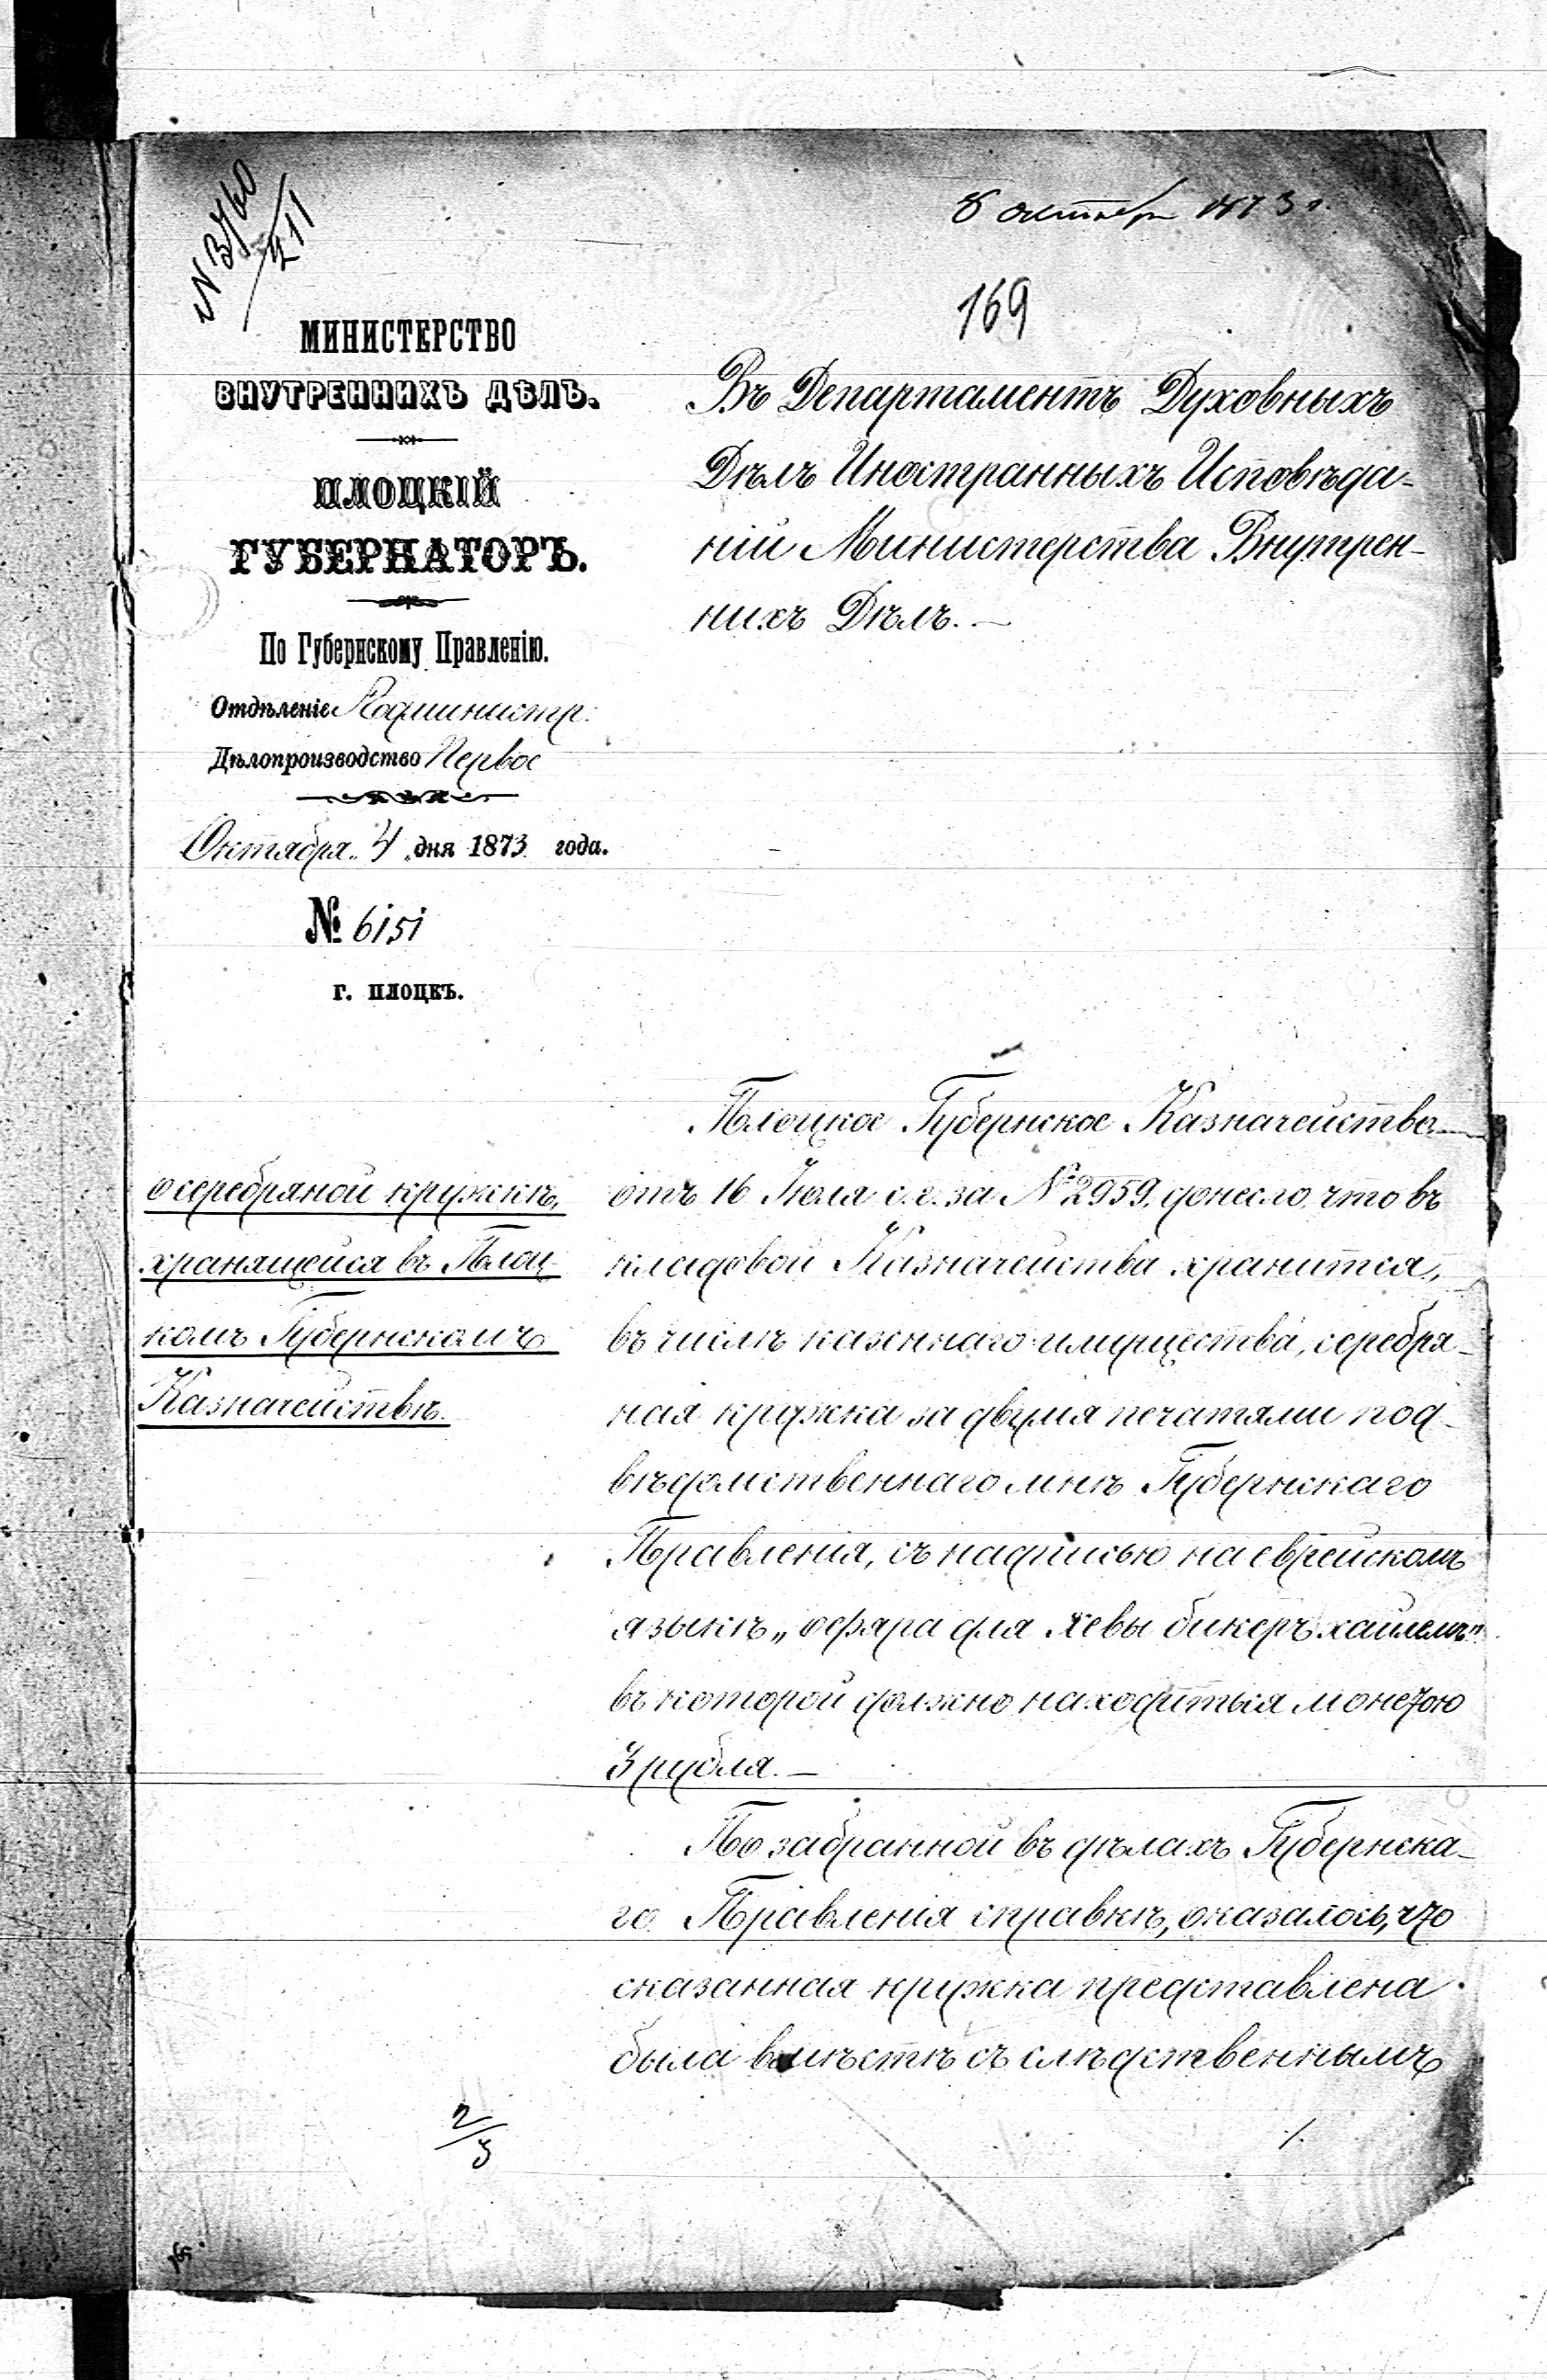 N 3760/211
8 октября 1873 г.
169
МИНИСТЕРСТВО
ВНУТРЕННИХЪ ДѢЛЪ.
ПЛОЦКІЙ
ГУБЕРНАТОРЪ.
По Губернскому Правленію.
Отдѣленіе Администр.
Дѣлопроизводство Первое
Октября „4„ дня 1873 года.
№ 6151
г. плоцкъ.
Въ Департаментъ Духовныхъ
Дѣлъ Иностранныхъ Исповѣда-
ній Министерства Внутрен-
нихъ Дѣлъ. —
о серебряной кружкѣ,
хранящейся въ Плоц-
комъ Губернскомъ
Казначействѣ.
Плоцкое Губернское Казначейство
отъ 16 Іюля с. г. за № 2959, донесло, что въ
кладовой Казначейства хранится,
въ числѣ казеннаго имущества, серебря-
ная кружка за двумя печатями под-
вѣдомственнаго мнѣ Губернскаго
Правленія, съ надписью на еврейскомъ
языкѣ „офяра для хевы бикеръ хаилемъ"
въ которой должно находиться монетою
3 рубля. —
По забранной въ дѣлахъ Губернска-
го Правленія справкѣ, оказалось, что
сказанная кружка представлена
была вмѣстѣ съ слѣдственнымъ
2/3
./.